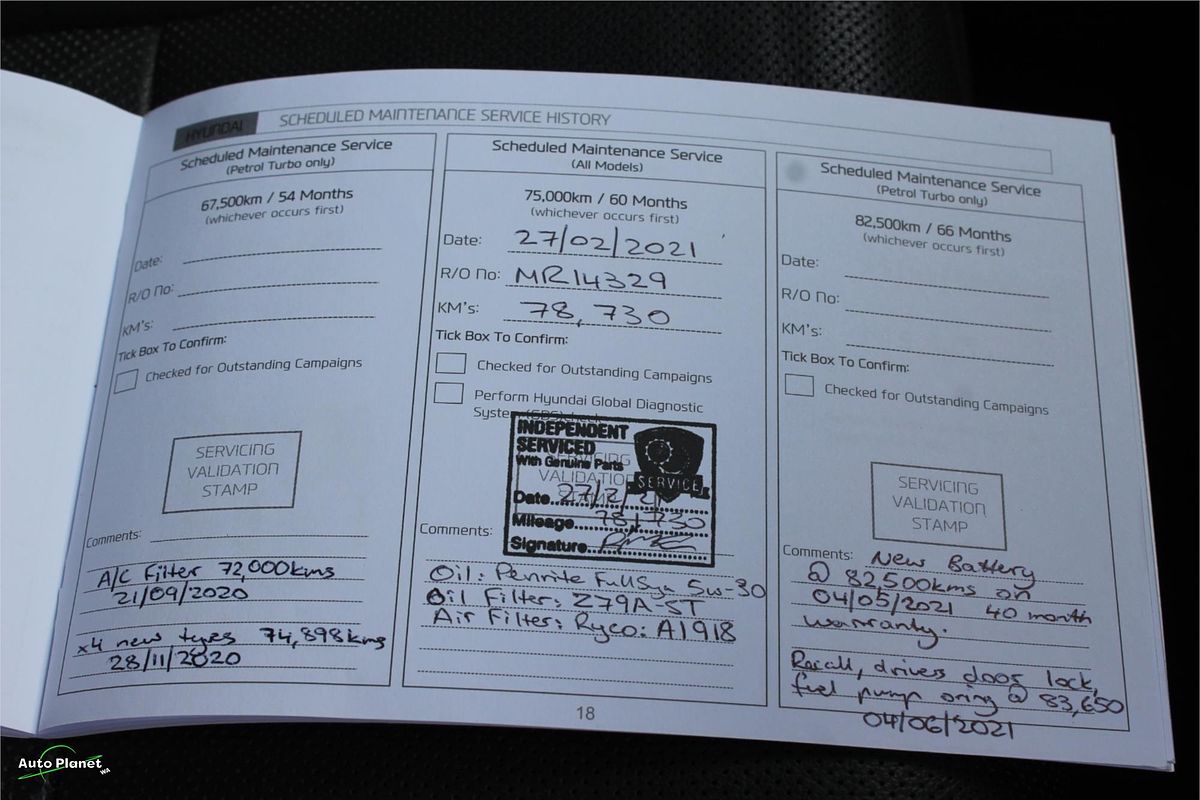 HYUNDAI
SCHEDULED MAINTENANCE SERVICE HISTORY
Scheduled Maintenance Service
(Petrol Turbo only)
67,500km / 54 Months
(whichever occurs first)
Date:
R/O No:
KM's:
Tick Box To Confirm:
Checked for Outstanding Campaigns
SERVICING
VALIDATION
STAMP
Comments:
A/C Filter 72,000kms
21/09/2020
x4 new tyres 74,898kms
28/11/2020
Scheduled Maintenance Service
(All Models)
75,000km / 60 Months
(whichever occurs first)
Date: 27/02/2021
R/O No: MR14329
KM's: 78,730
Tick Box To Confirm:
Checked for Outstanding Campaigns
Perform Hyundai Global Diagnostic
System (GDS)
INDEPENDENT
SERVICED
With Genuine Parts
SERVICING
VALIDATION
SERVICE
Date 27/2/21
Mileage 78,730
Signature
Comments:
Oil: Penrite FullSyn 5w-30
Oil Filter: Z79A-ST
Air Filter: Ryco: A1918
Scheduled Maintenance Service
(Petrol Turbo only)
82,500km / 66 Months
(whichever occurs first)
Date:
R/O No:
KM's:
Tick Box To Confirm:
Checked for Outstanding Campaigns
SERVICING
VALIDATION
STAMP
Comments: New Battery
@ 82,500kms on
04/05/2021 40 month
warranty.
Recall, drivers door lock,
fuel pump oring @ 83,650
04/06/2021
18
Auto Planet
WA